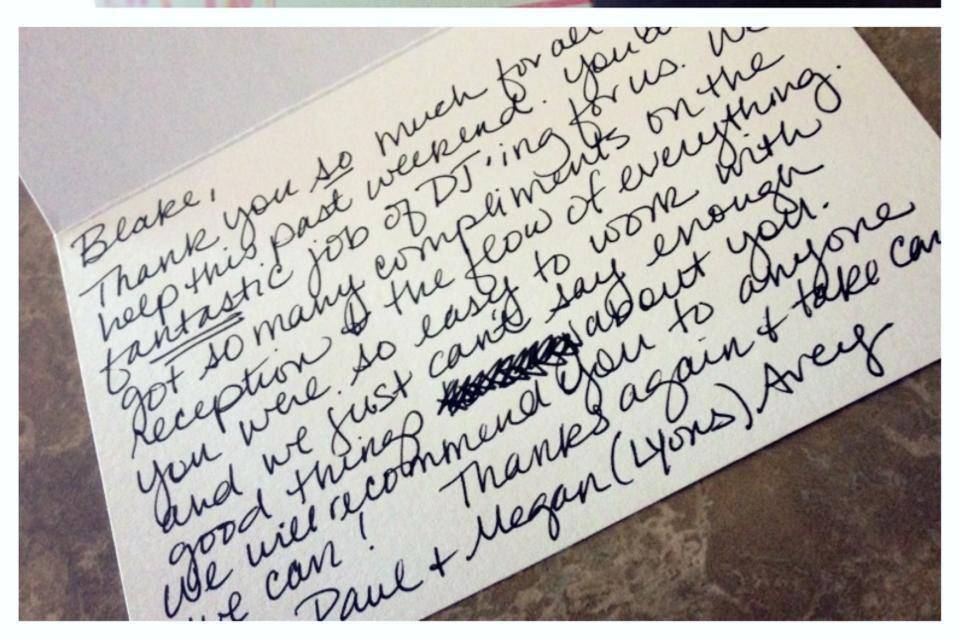 Blake,
Thank you so much for all
help this past weekend. You
fantastic job of DJ'ing for us. We
got so many compliments on the
reception & the flow of everything.
you were so easy to work with
and we just can't say enough
good things about you.
We will recommend you to anyone
we can! Thanks again & take car
Paul + Megan (Lyons) Avery